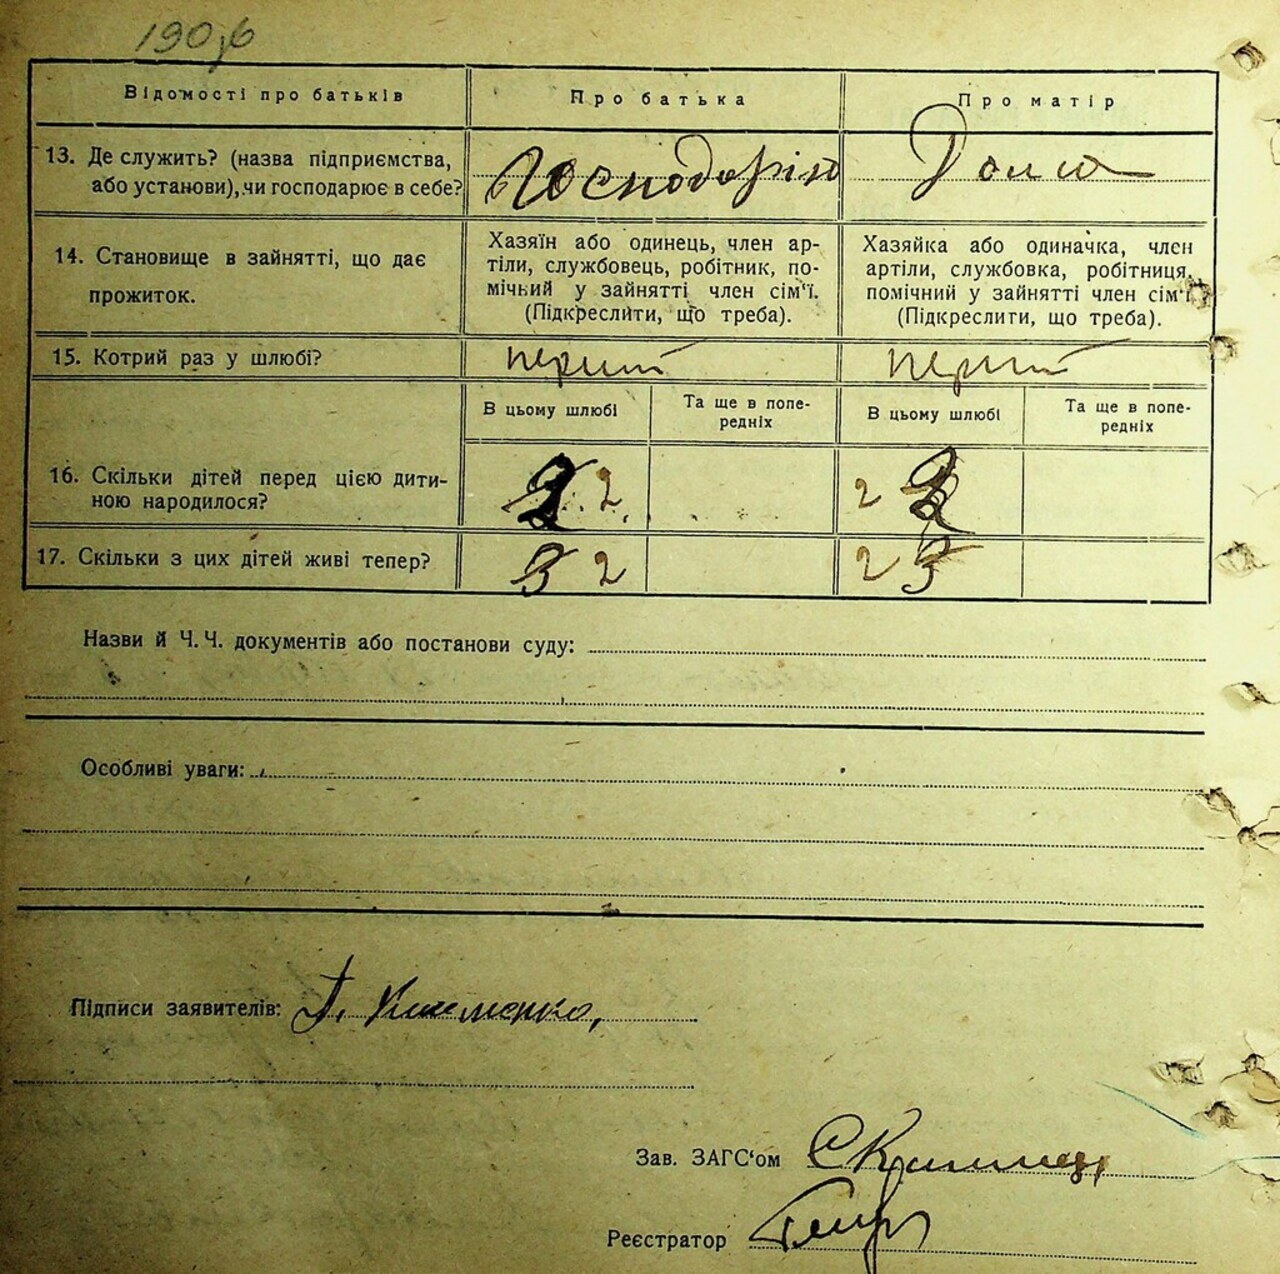 Відомості про батьків
Про батька
Про матір
13. Де служить? (назва підприємства, або установи), чи господарює в себе?
Господарію
Дома
14. Становище в зайнятті, що дає прожиток.
Хазяїн або одинець, член ар-
тіли, службовець, робітник, по-
мічний у зайнятті член сім'ї.
(Підкреслити, що треба).
Хазяйка або одиначка, член
артіли, службовка, робітниця,
помічний у зайнятті член сім'ї
(Підкреслити, що треба).
15. Котрий раз у шлюбі?
перший
перший
В цьому шлюбі
Та ще в попе-
редніх
В цьому шлюбі
Та ще в попе-
редніх
16. Скільки дітей перед цією дити-
ною народилося?
2
2
17. Скільки з цих дітей живі тепер?
3 2
2 3
Назви й Ч. Ч. документів або постанови суду:
Особливі уваги:
Підписи заявителів:
Зав. ЗАГС'ом
Реєстратор